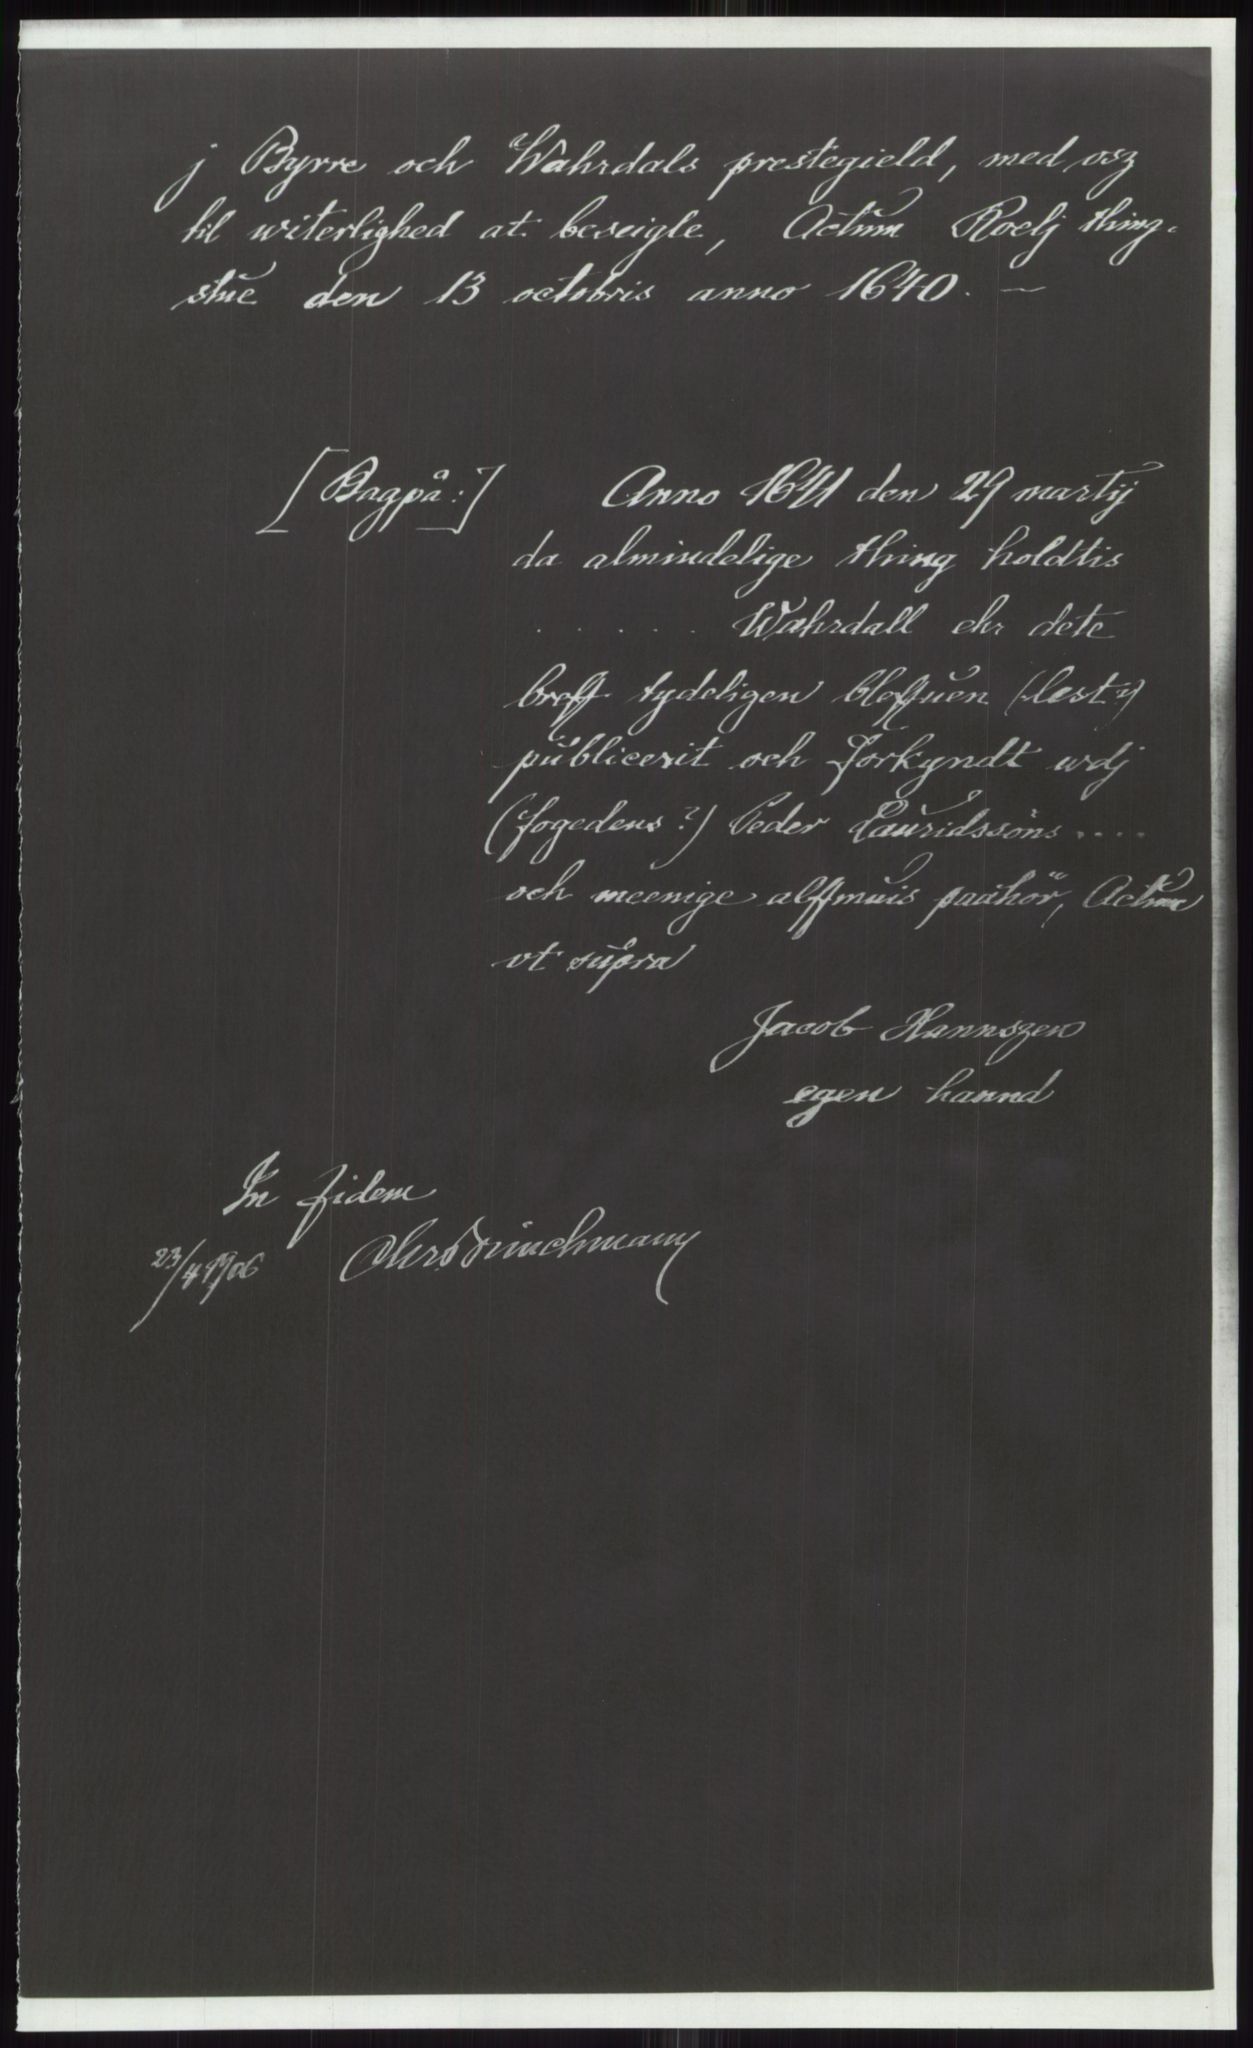 j Byrre och Wahrdals prestegield, med osz
til witerlighed at beseigle, Actum Roelj thing-
stue den 13 octobris anno 1640. —
[Bagpå:] Anno 1641 den 29 martij
da almindelige thing holdtis
. . . . . . Wahrdall ehr dete
breff tydeligen bleffuen (lest?)
publicerit och forkyndt udj
(fogedens?) Peder Lauridssöns ....
och meenige allmuis paahör, Actum
vt supra
Jacob Hannszen
egen hannd
In fidem
23/4 1906 Chr. Brinchmann